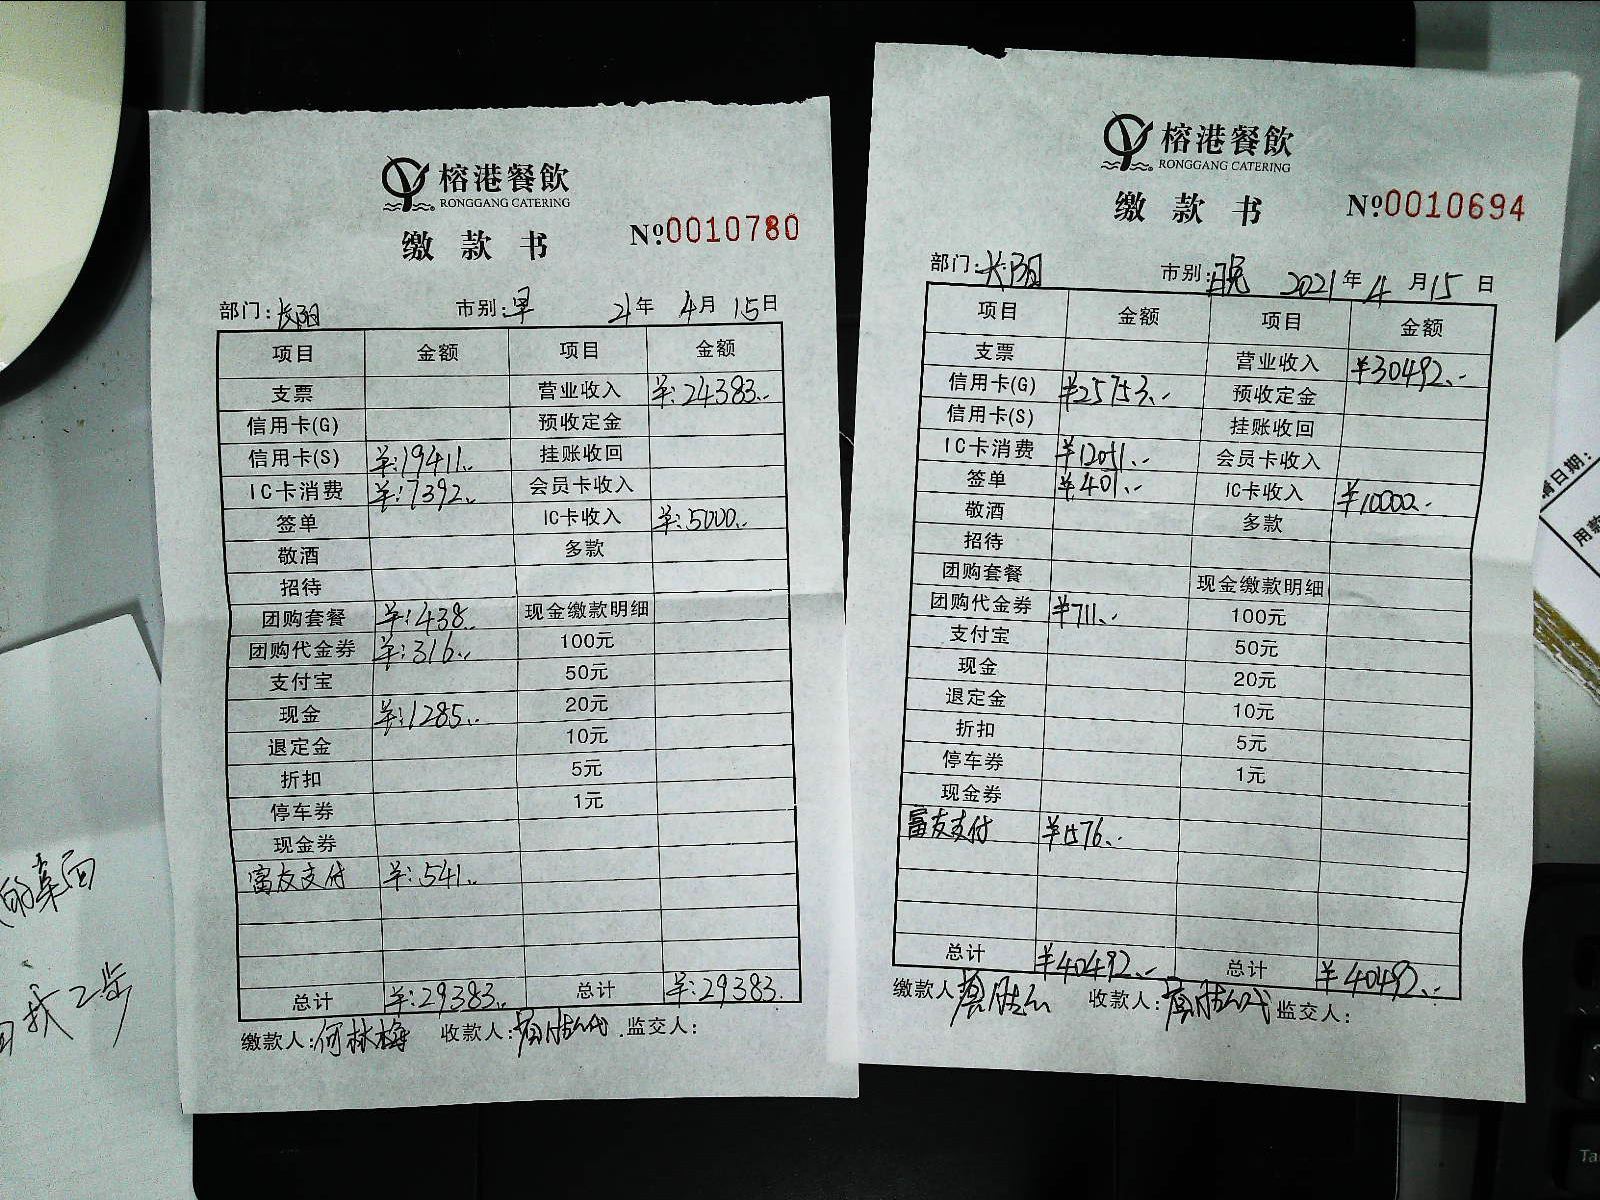 榕港餐飲
RONGGANG CATERING
缴款书 №0010780
部门:长阳 市别:早 21年 4月 15日
项目 金额 项目 金额
支票 营业收入 ¥:24383.-
信用卡(G) 预收定金
信用卡(S) ¥:19411.- 挂账收回
IC卡消费 ¥:7392.- 会员卡收入
签单 IC卡收入 ¥:5000.-
敬酒 多款
招待
团购套餐 ¥:438.- 现金缴款明细
团购代金券 ¥:316.- 100元
支付宝 50元
现金 ¥:1285.- 20元
退定金 10元
折扣 5元
停车券 1元
现金券
富友支付 ¥:541.-
总计 ¥:29383.- 总计 ¥:29383.
缴款人:何林梅 收款人: 监交人:
榕港餐飲
RONGGANG CATERING
缴款书 №0010694
部门:长阳 市别:晚 2021年 4月15日
项目 金额 项目 金额
支票 营业收入 ¥30492.-
信用卡(G) ¥25753.- 预收定金
信用卡(S) 挂账收回
IC卡消费 ¥12051.- 会员卡收入
签单 ¥401.- IC卡收入 ¥10000.-
敬酒 多款
招待
团购套餐 现金缴款明细
团购代金券 ¥711.- 100元
支付宝 50元
现金 20元
退定金 10元
折扣 5元
停车券 1元
现金券
富友支付 ¥1576.-
总计 ¥40492.- 总计 ¥40492.-
缴款人: 收款人: 监交人:
请日期:
用款
的桌面